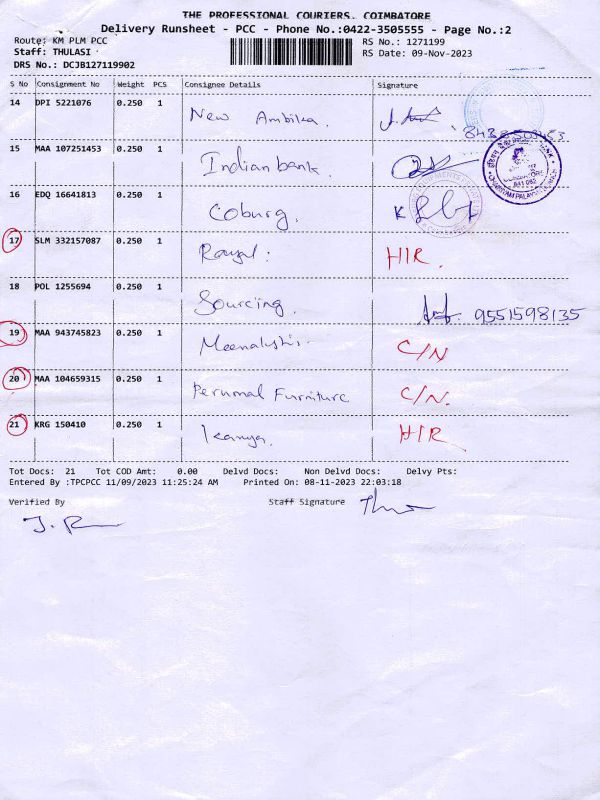 THE PROFESSIONAL COURIERS, COIMBATORE
Delivery Runsheet - PCC - Phone No.:0422-3505555 - Page No.:2
Route: KM PLM PCC RS No.: 1271199
Staff: THULASI RS Date: 09-Nov-2023
DRS No.: DCJB127119902
S No Consignment No Weight PCS Consignee Details Signature
14 DPI 5221076 0.250 1 New Ambika.
15 MAA 107251453 0.250 1 Indian bank.
16 EDQ 16641813 0.250 1 Coburg.
17 SLM 332157087 0.250 1 Royal: HIR.
18 POL 1255694 0.250 1 Sourcing. 9551598135
19 MAA 943745823 0.250 1 C/N
20 MAA 104659315 0.250 1 Perumal Furniture C/N.
21 KRG 150410 0.250 1 HIR
Tot Docs: 21 Tot COD Amt: 0.00 Delvd Docs: Non Delvd Docs: Delvy Pts:
Entered By :TPCPCC 11/09/2023 11:25:24 AM Printed On: 08-11-2023 22:03:18
Verified By Staff Signature